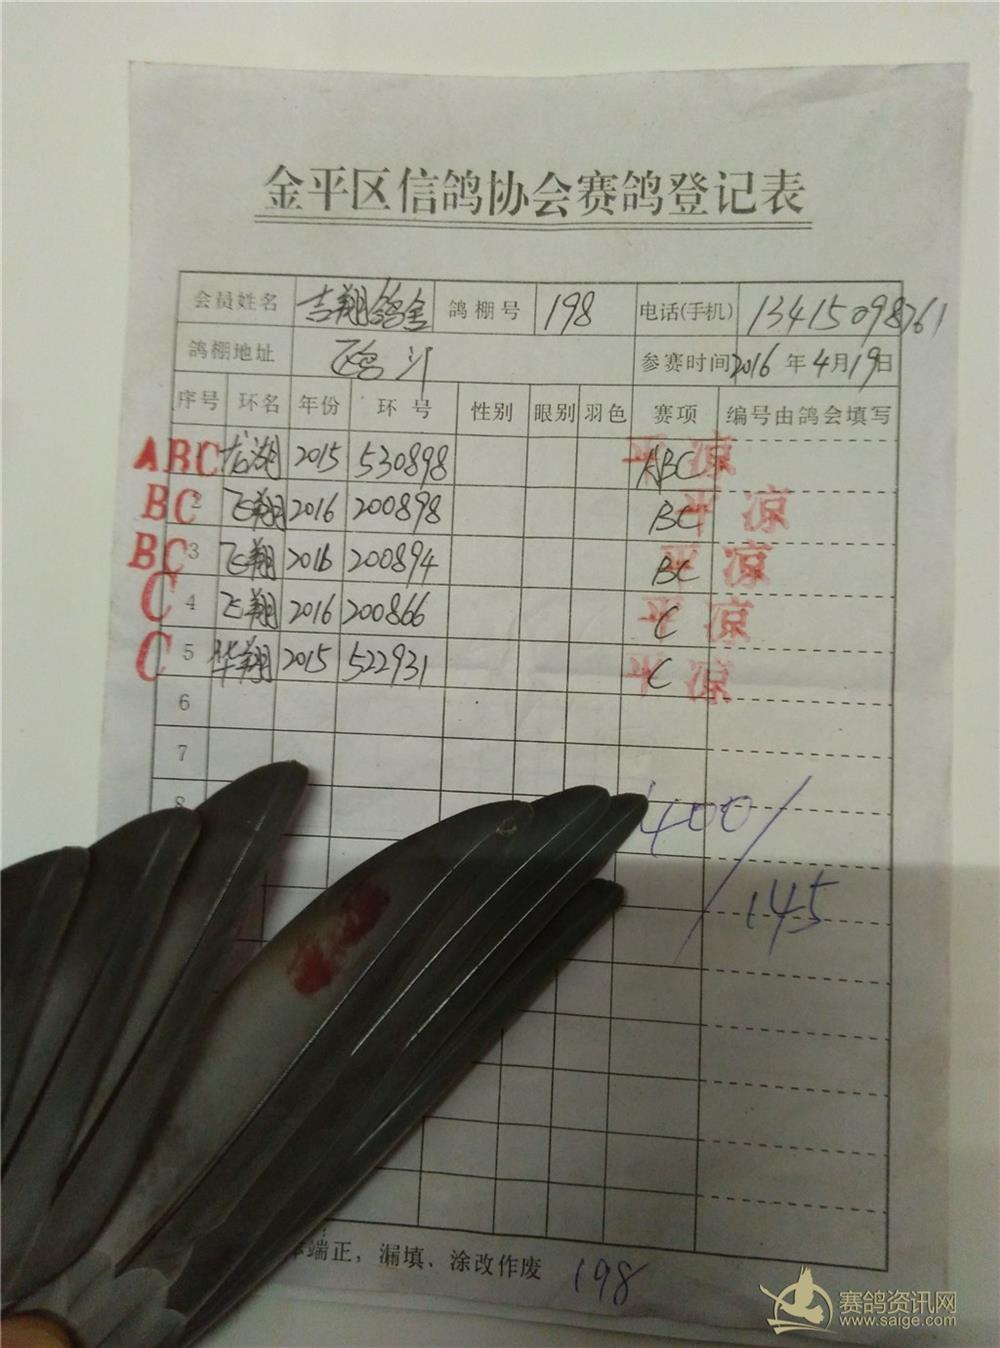 金平区信鸽协会赛鸽登记表
会员姓名 吉翔鸽舍 鸽棚号 198 电话(手机) 13415098761
鸽棚地址 参赛时间 2016 年 4 月 19 日
序号 环名 年份 环号 性别 眼别 羽色 赛项 编号由鸽会填写
ABC 龙湖 2015 530898 ABC 平凉
BC 2 飞翔 2016 200898 BC 平凉
BC 3 飞翔 2016 200894 BC 平凉
C 4 飞翔 2016 200866 C 平凉
C 5 华翔 2015 522931 C 平凉
6
7
8
400/
145
端正，漏填、涂改作废 198
赛鸽资讯网
www.saige.com